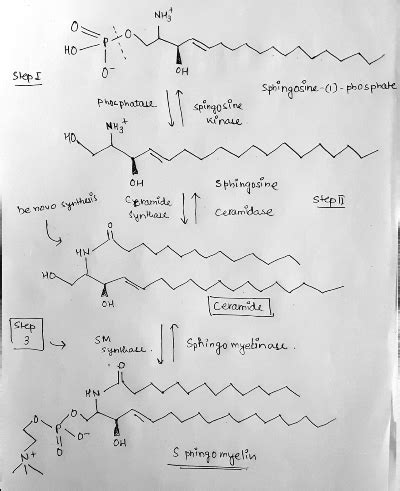 NH3+
O
HO
P
O
O-
OH
Step I
Sphingosine-(1)-phosphate
phosphatase
spingosine
Kinase
NH3+
HO
OH
Sphingosine
De novo synthesis
Ceramide
synthase
Ceramidase
Step II
O
HN
HO
OH
Ceramide
Step
3
SM
synthase.
Sphingomyelinase.
O
HN
O
P
O
O-
O
OH
N+
Sphingomyelin